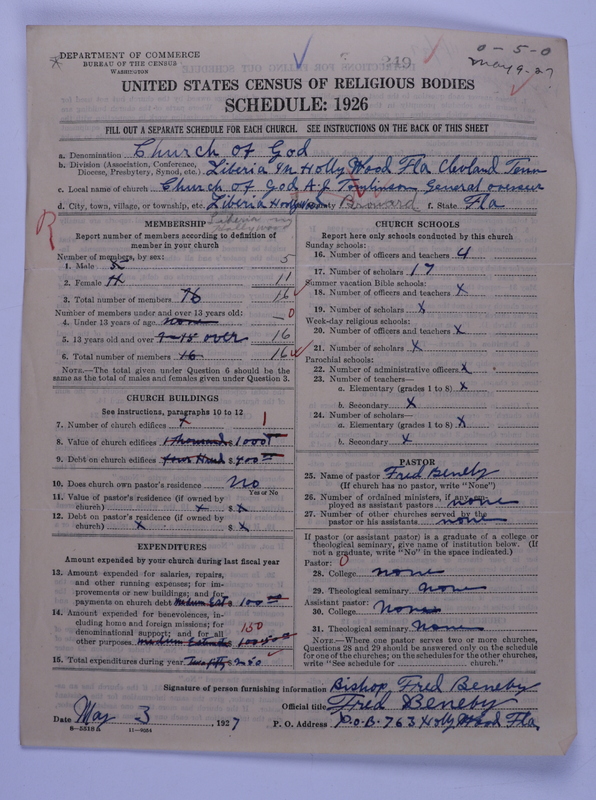 DEPARTMENT OF COMMERCE
BUREAU OF THE CENSUS
WASHINGTON
249
0-5-0
May 9-27
UNITED STATES CENSUS OF RELIGIOUS BODIES
SCHEDULE: 1926
FILL OUT A SEPARATE SCHEDULE FOR EACH CHURCH. SEE INSTRUCTIONS ON THE BACK OF THIS SHEET
a. Denomination Church of God
b. Division (Association, Conference, Diocese, Presbytery, Synod, etc.) Liberia in Holly Wood Fla Clevland Tenn
c. Local name of church Church of God A.J Tomlinson General overseer
d. City, town, village, or township, etc. Liberia Hollywood County Broward f. State Fla
Liberia in Hollywood
R
MEMBERSHIP
Report number of members according to definition of member in your church
Number of members, by sex:
1. Male 5
2. Female 11 11
3. Total number of members 16 16
Number of members under and over 13 years old:
4. Under 13 years of age none 0
5. 13 years old and over over 16
6. Total number of members 16 16
NOTE.—The total given under Question 6 should be the same as the total of males and females given under Question 3.
CHURCH BUILDINGS
See instructions, paragraphs 10 to 12
7. Number of church edifices x 1
8. Value of church edifices 1 thousand $ 1000 00
9. Debt on church edifices four Hund $ 400 00
10. Does church own pastor's residence No
Yes or No
11. Value of pastor's residence (if owned by church) x $ x
12. Debt on pastor's residence (if owned by church) x $ x
EXPENDITURES
Amount expended by your church during last fiscal year
13. Amount expended for salaries, repairs, and other running expenses; for improvements or new buildings; and for payments on church debt $ 100 00
14. Amount expended for benevolences, including home and foreign missions; for denominational support; and for all other purposes 150
15. Total expenditures during year $ 250
CHURCH SCHOOLS
Report here only schools conducted by this church
Sunday schools:
16. Number of officers and teachers 4
17. Number of scholars 17
Summer vacation Bible schools:
18. Number of officers and teachers x
19. Number of scholars x
Week-day religious schools:
20. Number of officers and teachers x
21. Number of scholars x
Parochial schools:
22. Number of administrative officers x
23. Number of teachers—
a. Elementary (grades 1 to 8) x
b. Secondary x
24. Number of scholars—
a. Elementary (grades 1 to 8) x
b. Secondary x
PASTOR
25. Name of pastor Fred Beneby
(If church has no pastor, write "None")
26. Number of ordained ministers, if any, employed as assistant pastors none
27. Number of other churches served by the pastor or his assistants none
If pastor (or assistant pastor) is a graduate of a college or theological seminary, give name of institution below. (If not a graduate, write "No" in the space indicated.)
Pastor: 0
28. College none
29. Theological seminary none
Assistant pastor:
30. College none
31. Theological seminary none
NOTE.—Where one pastor serves two or more churches, Questions 28 and 29 should be answered only on the schedule for one of the churches; on the schedules for the other churches, write "See schedule for church."
Signature of person furnishing information Bishop Fred Beneby
Official title Fred Beneby
Date May 3, 1927 P. O. Address P.O.B. 763 Holly Wood Fla
8-5518a 11-9054